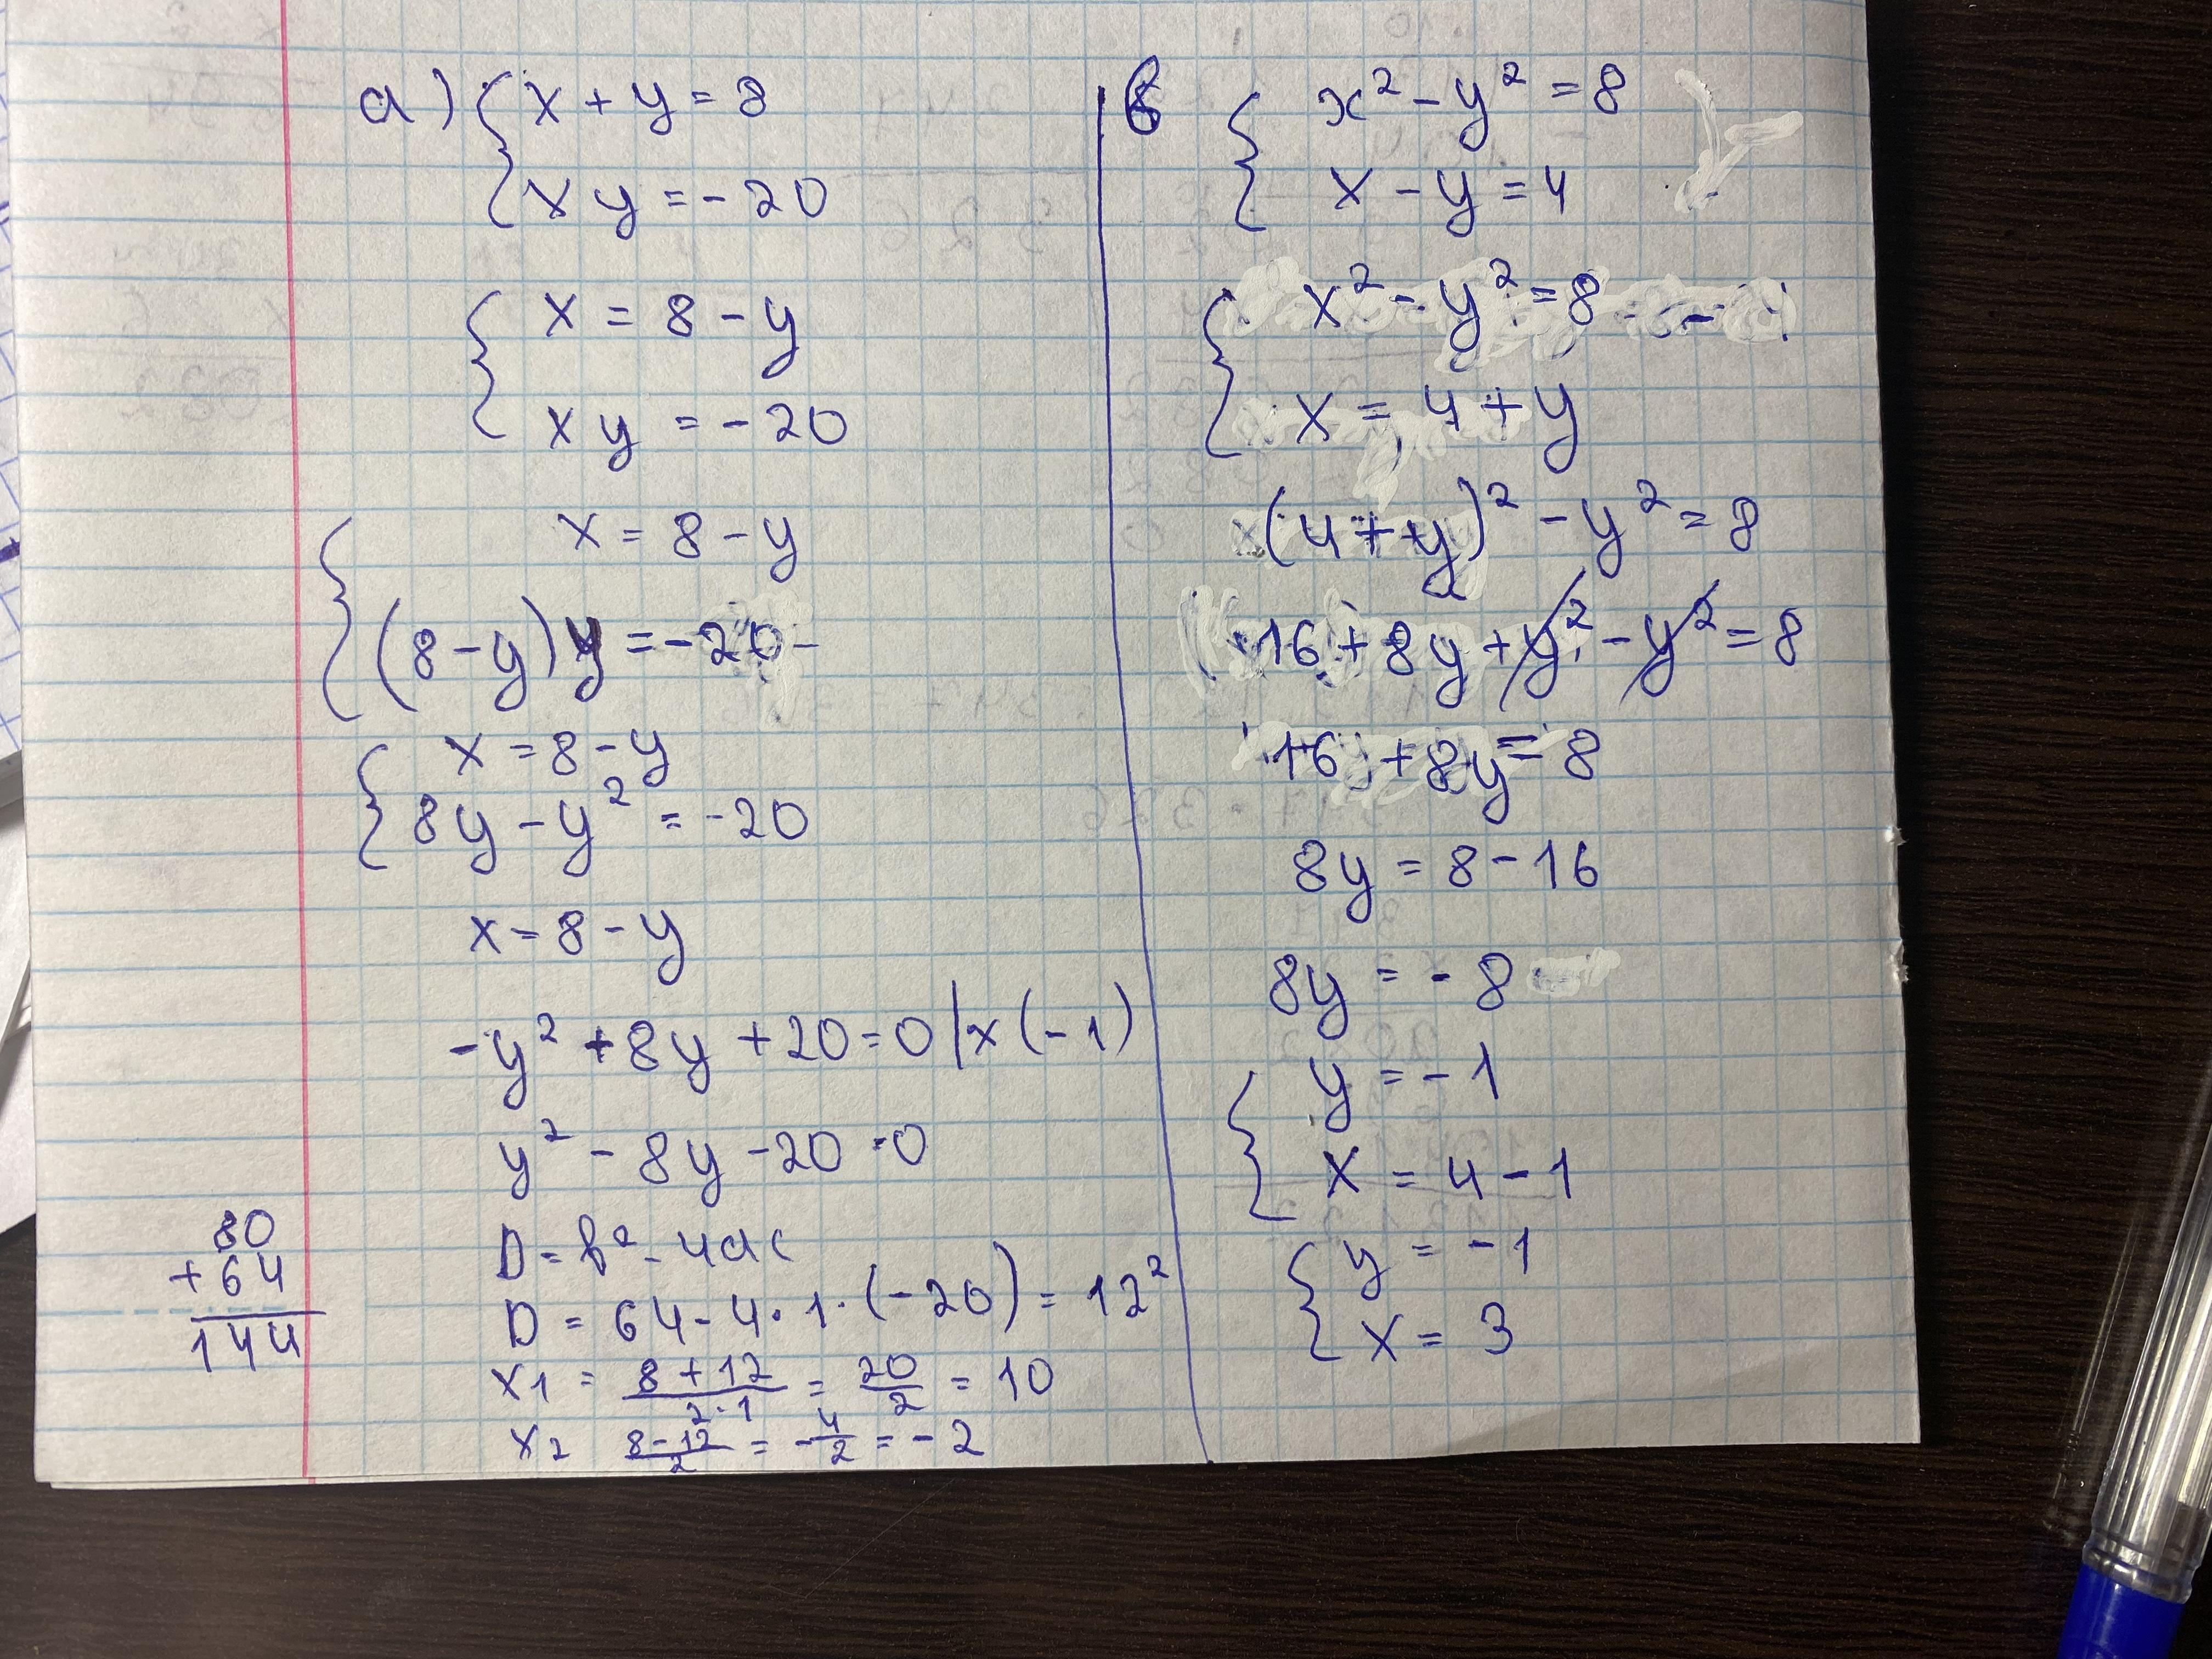 а) { x + y = 8
x y = - 20
{ x = 8 - y
x y = - 20
{ x = 8 - y
(8 - y) y = - 20 -
{ x = 8 - y
8y - y² = - 20
x = 8 - y
- y² + 8y + 20 = 0 | x (- 1)
y² - 8y - 20 = 0
D = b² - 4ac
D = 64 - 4 · 1 · (- 20) = 12²
x1 = (8 + 12)/(2 · 1) = 20/2 = 10
x2 (8 - 12)/2 = - 4/2 = - 2
80
+ 64
144
в { x² - y² = 8
x - y = 4
{ x² - y² = 8
x = 4 + y
(4 + y)² - y² = 8
16 + 8y + y² - y² = 8
16 + 8y = 8
8y = 8 - 16
8y = - 8
{ y = - 1
x = 4 - 1
{ y = - 1
x = 3